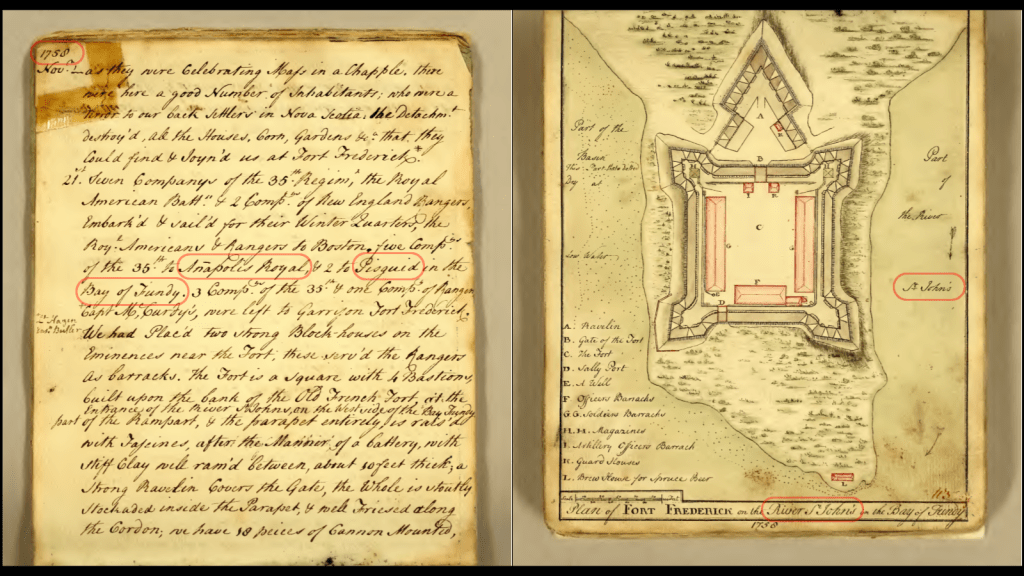 1758
Nov.r as they were Celebrating Mass in a Chapple. there
were here a good Number of Inhabitants, who were a
Terror to our back Settlers in Nova Scotia. the Detachm.t
destroy'd, all the Houses, Corn, Gardens &c.a that they
Could find & Joyn'd us at Fort Frederick.
21st. Seven Companys of the 35th Regim.t the Royal
American Batt.n & 2 Comp.ys of New England Rangers
Embark'd & sail'd for their Winter Quarters, the
Roy.l Americans & Rangers to Boston, five Comp.ys
of the 35th to Annapolis Royal, & 2 to Pisquid in the
Bay of Fundy. 3 Comp.ys of the 35th & one Comp.y of Rangers
Capt. M.cCurdys, were left to Garrison Fort Frederick.
Hazen
Butler
We had Plac'd two strong Block-houses on the
Eminences near the Fort, these serv'd the Rangers
As barracks. the Fort is a square with 4 Bastions,
built upon the bank of the Old French Fort, at the
Entrance of the River St. Johns, on the West side of the Bay Fundy
part of the Rampart, & the parapet entirely is rais'd
with Fascines, after the Manner of a battery, with
stiff Clay well ram'd between, about 10 feet thick; a
strong Ravelin Covers the Gate, the Whole is strutly
Stockaded inside the Parapet, & well Friesed along
the Cordon; we have 18 peices of Cannon Mounted,
A
Part of the
Bason
this Part
Dry at
Low Water
Part
of
the River
St. John's
B
I
K
C
G
G
F
H
D
E
L
A. Ravelin
B. Gate of the Fort
C. The Fort
D. Sally Port
E. A Well
F. Officers Barracks
G G. Soldiers Barracks
H. H. Magazines
I. Artillery Officers Barrack
K. Guard Houses
L. Brew House for Spruce Beer
Plan of FORT FREDERICK on the River St. John's on the Bay of Fundy
1758